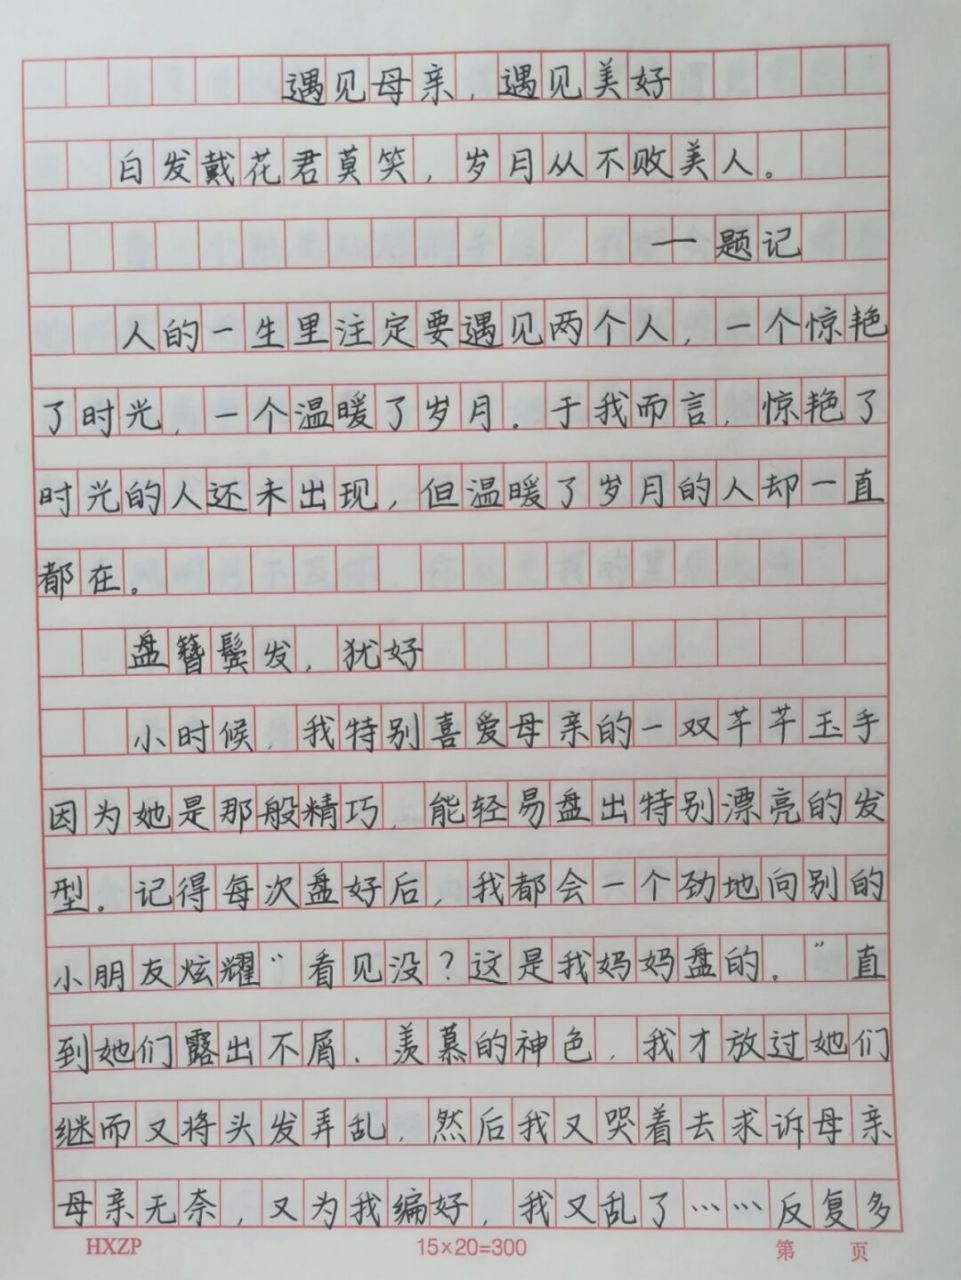 遇见母亲，遇见美好
白发戴花君莫笑，岁月从不败美人。
一题记
人的一生里注定要遇见两个人，一个惊艳
了时光，一个温暖了岁月．于我而言，惊艳了
时光的人还未出现，但温暖了岁月的人却一直
都在。
盘簪鬓发，犹好
小时候，我特别喜爱母亲的一双芊芊玉手
因为她是那般精巧，能轻易盘出特别漂亮的发
型。记得每次盘好后，我都会一个劲地向别的
小朋友炫耀“看见没？这是我妈妈盘的．”直
到她们露出不屑、羡慕的神色，我才放过她们
继而又将头发弄乱，然后我又哭着去求诉母亲
母亲无奈，又为我编好，我又乱了……反复多
HXZP 15×20=300 第 页